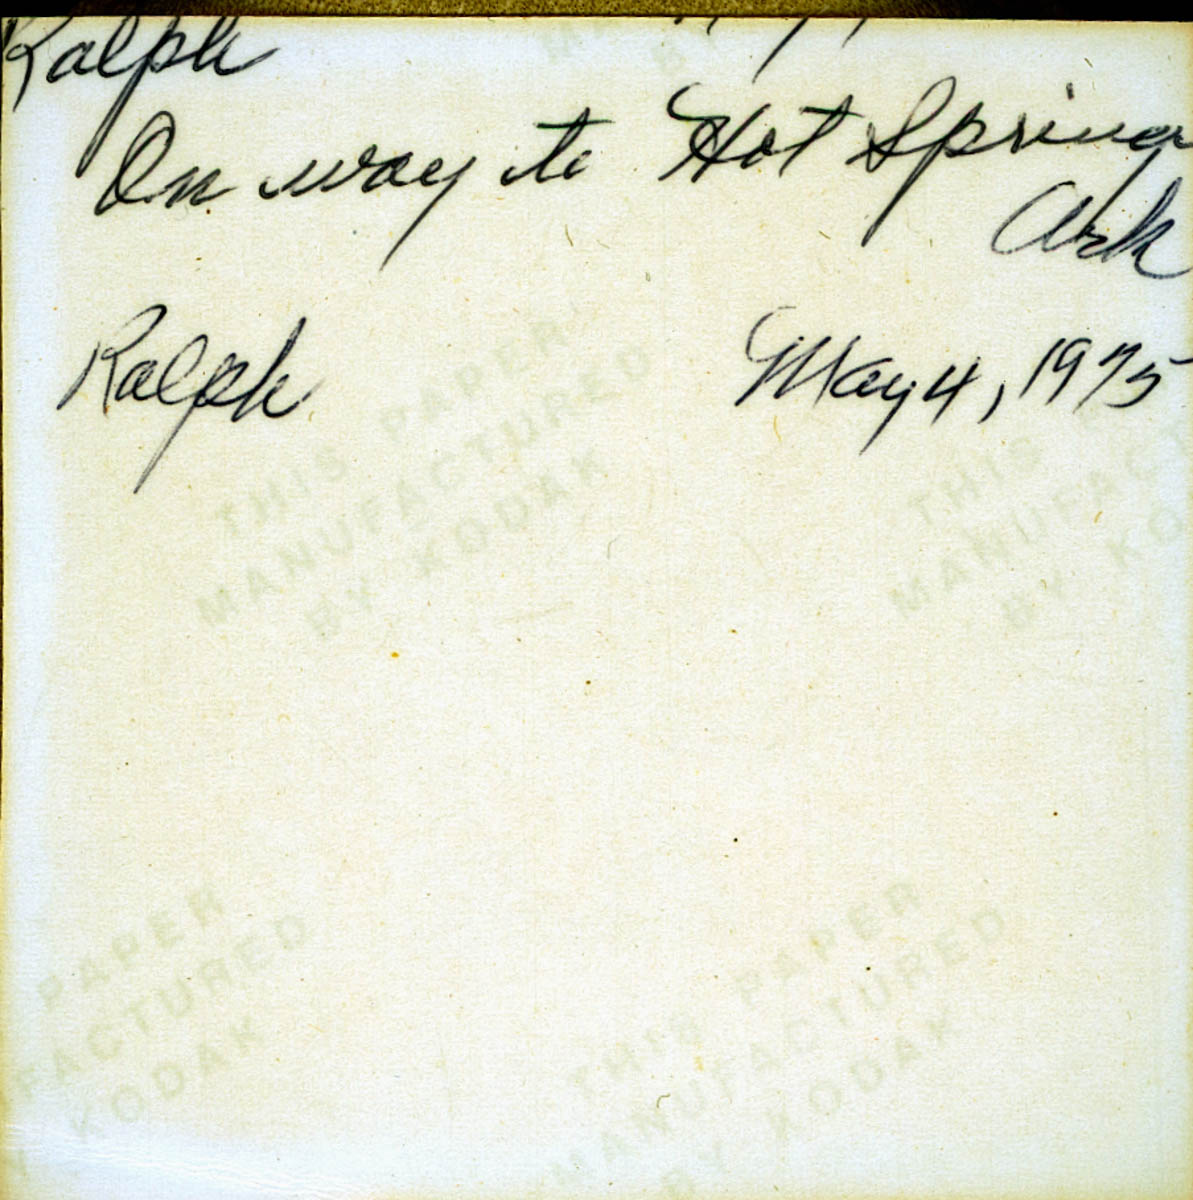 Ralph
On way to Hot Springs
Ark
Ralph May 4, 1975
THIS PAPER
MANUFACTURED
BY KODAK
THIS
MANUFACT
BY KO
PAPER
FACTURED
KODAK
THIS PAPER
MANUFACTURED
BY KODAK